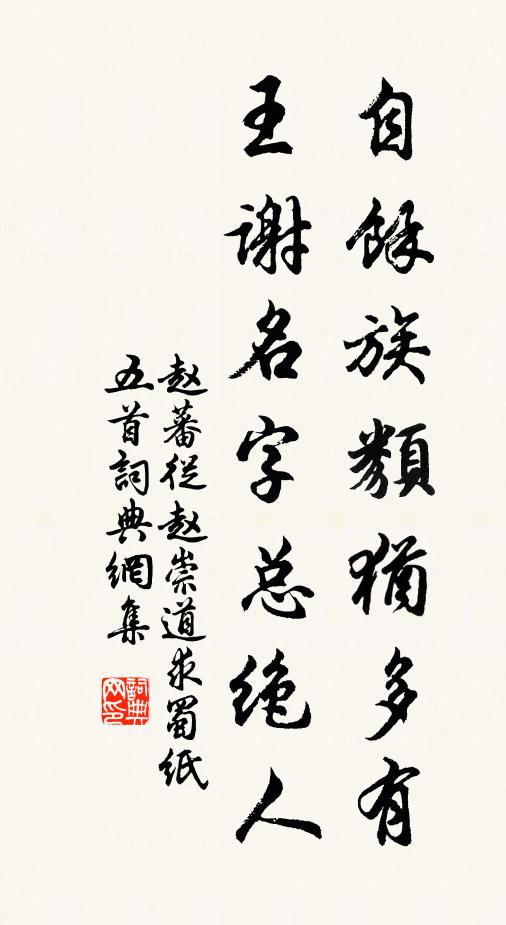 自餘族類猶多有
王谢名字总绝人
赵蕃從赵崇道求蜀紙
五首詞典網集
詞典
网印